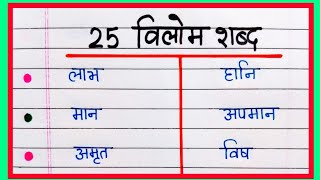 25 विलोम शब्द
लाभ हानि
मान अपमान
अमृत विष